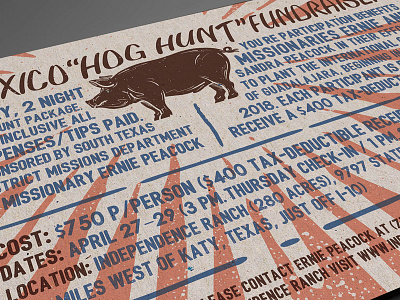 XICO "HOG HUNT" FUNDRAISE
Y, 2 NIGHT
UNT PACKAGE.
INCLUSIVE ALL
PENSES/TIPS PAID.
NSORED BY SOUTH TEXAS
TRICT MISSIONS DEPARTMENT
MISSIONARY ERNIE PEACOCK
YOUR PARTICIPATION BENEFITS
MISSIONARIES ERNIE AND
SANDRA PEACOCK IN THEIR
TO PLANT THE INTERNATIONAL
OF GUADALAJARA BEGINNING
2018. EACH PARTICIPANT
RECEIVE A $400 TAX-DEDU
COST: $750 P/PERSON ($400 TAX-DEDUCTIBLE RECEI
DATES: APRIL 27-29 (3 PM, THURSDAY CHECK IN / 1 PM S
LOCATION: INDEPENDENCE RANCH (280 ACRES), 9797 STA
MILES WEST OF KATY, TEXAS, JUST OFF I-10).
LEASE CONTACT ERNIE PEACOCK AT (7
ENCE RANCH VISIT WWW.IND